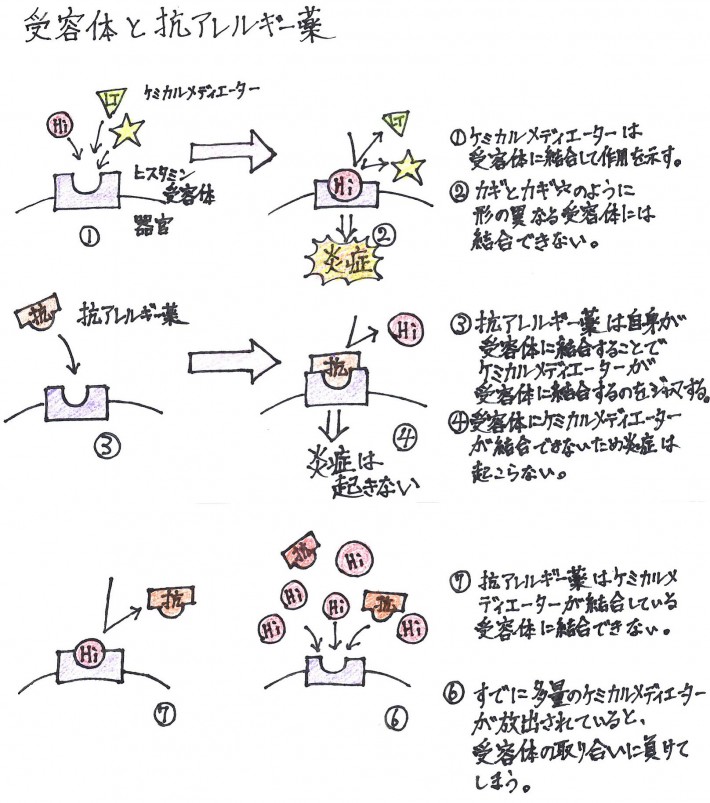 受容体と抗アレルギー薬
LT
ケミカルメディエーター
Hi
ヒスタミン
受容体
器官
①
LT
Hi
②
炎症
①ケミカルメディエーターは
受容体に結合して作用を示す。
②カギとカギ穴のように
形の異なる受容体には
結合できない。
抗
抗アレルギー薬
③
Hi
抗
④
炎症は
起きない
③抗アレルギー薬は自身が
受容体に結合することで
ケミカルメディエーターが
受容体に結合するのをジャマする。
④受容体にケミカルメディエーター
が結合できないため炎症は
起こらない。
抗
Hi
⑦
抗
Hi
Hi
Hi
抗
Hi
Hi
⑥
⑦抗アレルギー薬はケミカルメ
ディエーターが結合している
受容体に結合できない。
⑥すでに多量のケミカルメディエーター
が放出されていると、
受容体の取り合いに負けて
しまう。